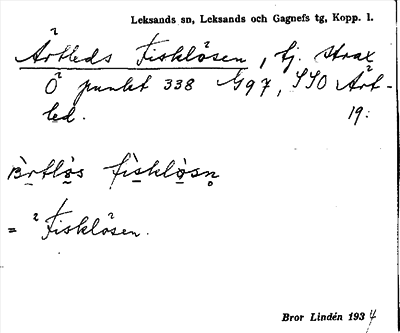 Leksands sn, Leksands och Gagnefs tg, Kopp. l.
Årtleds Fisklösen, tj. strax
Ö punkt 338 NG97, SSO Årt-
led. 19:
fisklòsn
= Fisklösen.
Bror Lindén 1934